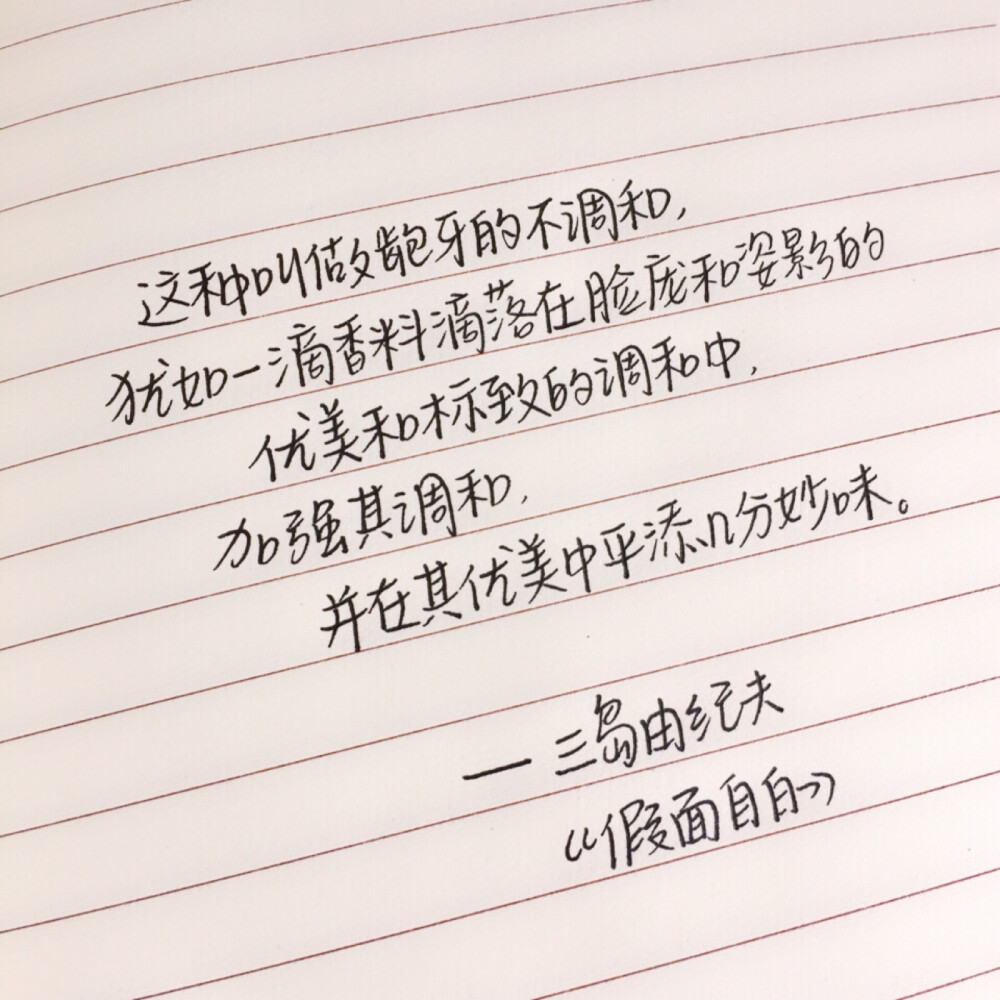 这种叫做龅牙的不调和,
犹如一滴香料滴落在脸庞和姿影的
优美和标致的调和中,
加强其调和,
并在其优美中平添几分妙味。
— 三岛由纪夫
《假面自白》